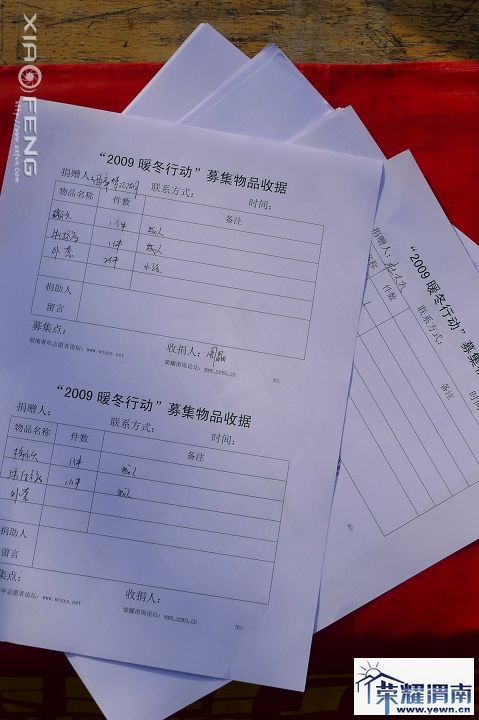 XIAO FENG
"2009 暖冬行动"募集物品收据
捐赠人： 联系方式： 时间：
物品名称 件数 备注
1件 成人
1件 成人
外套 2件 小孩
捐助人
留言
募集点： 收捐人：周晶
渭南青年志愿者论坛：www.wnzyz.net 荣耀渭南论坛：www.yewn.cn NO:
"2009 暖冬行动"募集物品收据
捐赠人： 联系方式： 时间：
物品名称 件数 备注
棉衣 1件 成人
11件 成人
外套
捐助人
留言
集点： 收捐人：
年志愿者论坛：www.wnzyz.net 荣耀渭南论坛：www.yewn.cn NO:
"2009 暖冬行动"募集物品
捐赠人： 联系方式：
名称 件数 备注
NO:
荣耀渭南
www.yewn.cn